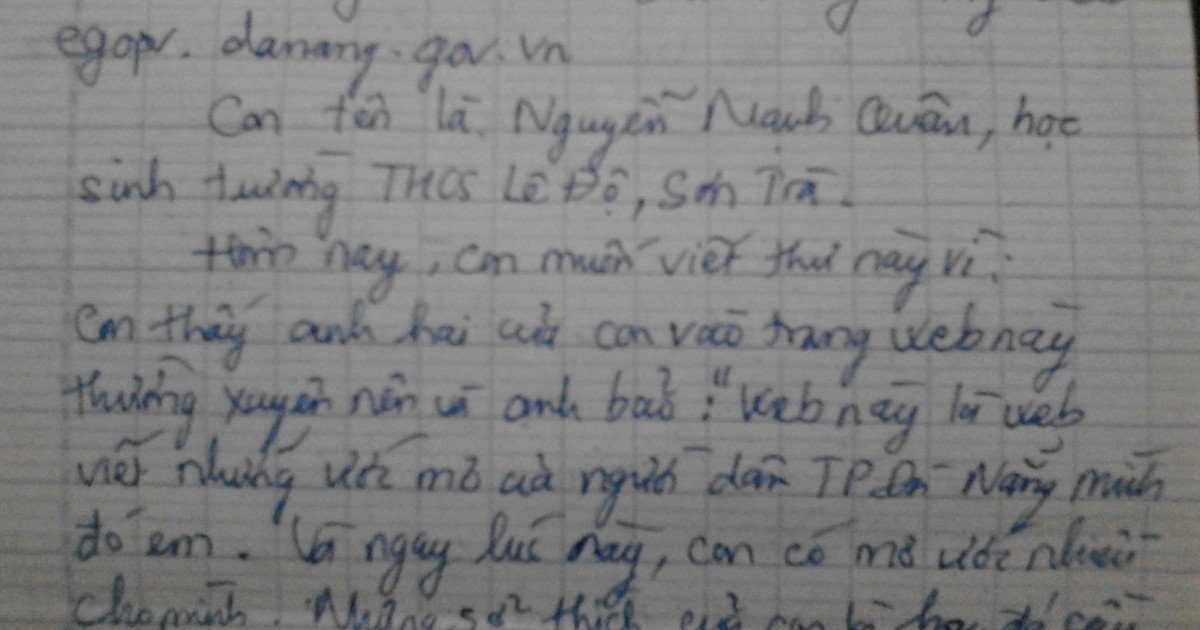 egov. danang.gov.vn
Con tên là Nguyễn Mạnh Quân, học
sinh trường THCS Lê Độ, Sơn Trà.
Hôm nay, con muốn viết thư này vì:
Con thấy anh hai của con vào trang web này
thường xuyên nên và anh bảo: "Web này là web
viết những ước mơ của người dân TP Đà Nẵng mình
đó em. Và ngay lúc này, con có mơ ước nhiều
cho mình. Những sở thích của con là